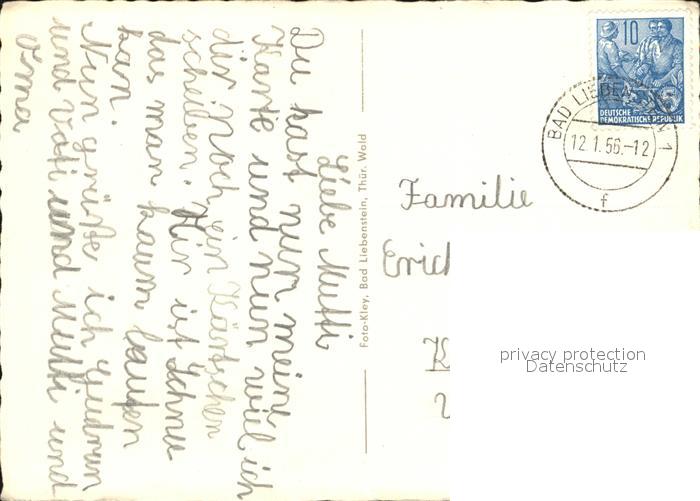 Liebe Mutti
Du hast nun meine
Karte und nun will ich
dir noch ein Kärtchen
scheiben. Hir ist Schnu
das man kaum laufen
kan.
Nun grüße ich Gudrun
und vati und Mutti und
oma
Foto-Kley, Bad Liebenstein, Thür. Wald
10
DEUTSCHE
DEMOKRATISCHE REPUBLIK
BAD LIEBEN
12.1.56.-12
f
Familie
Erich
privacy protection
Datenschutz